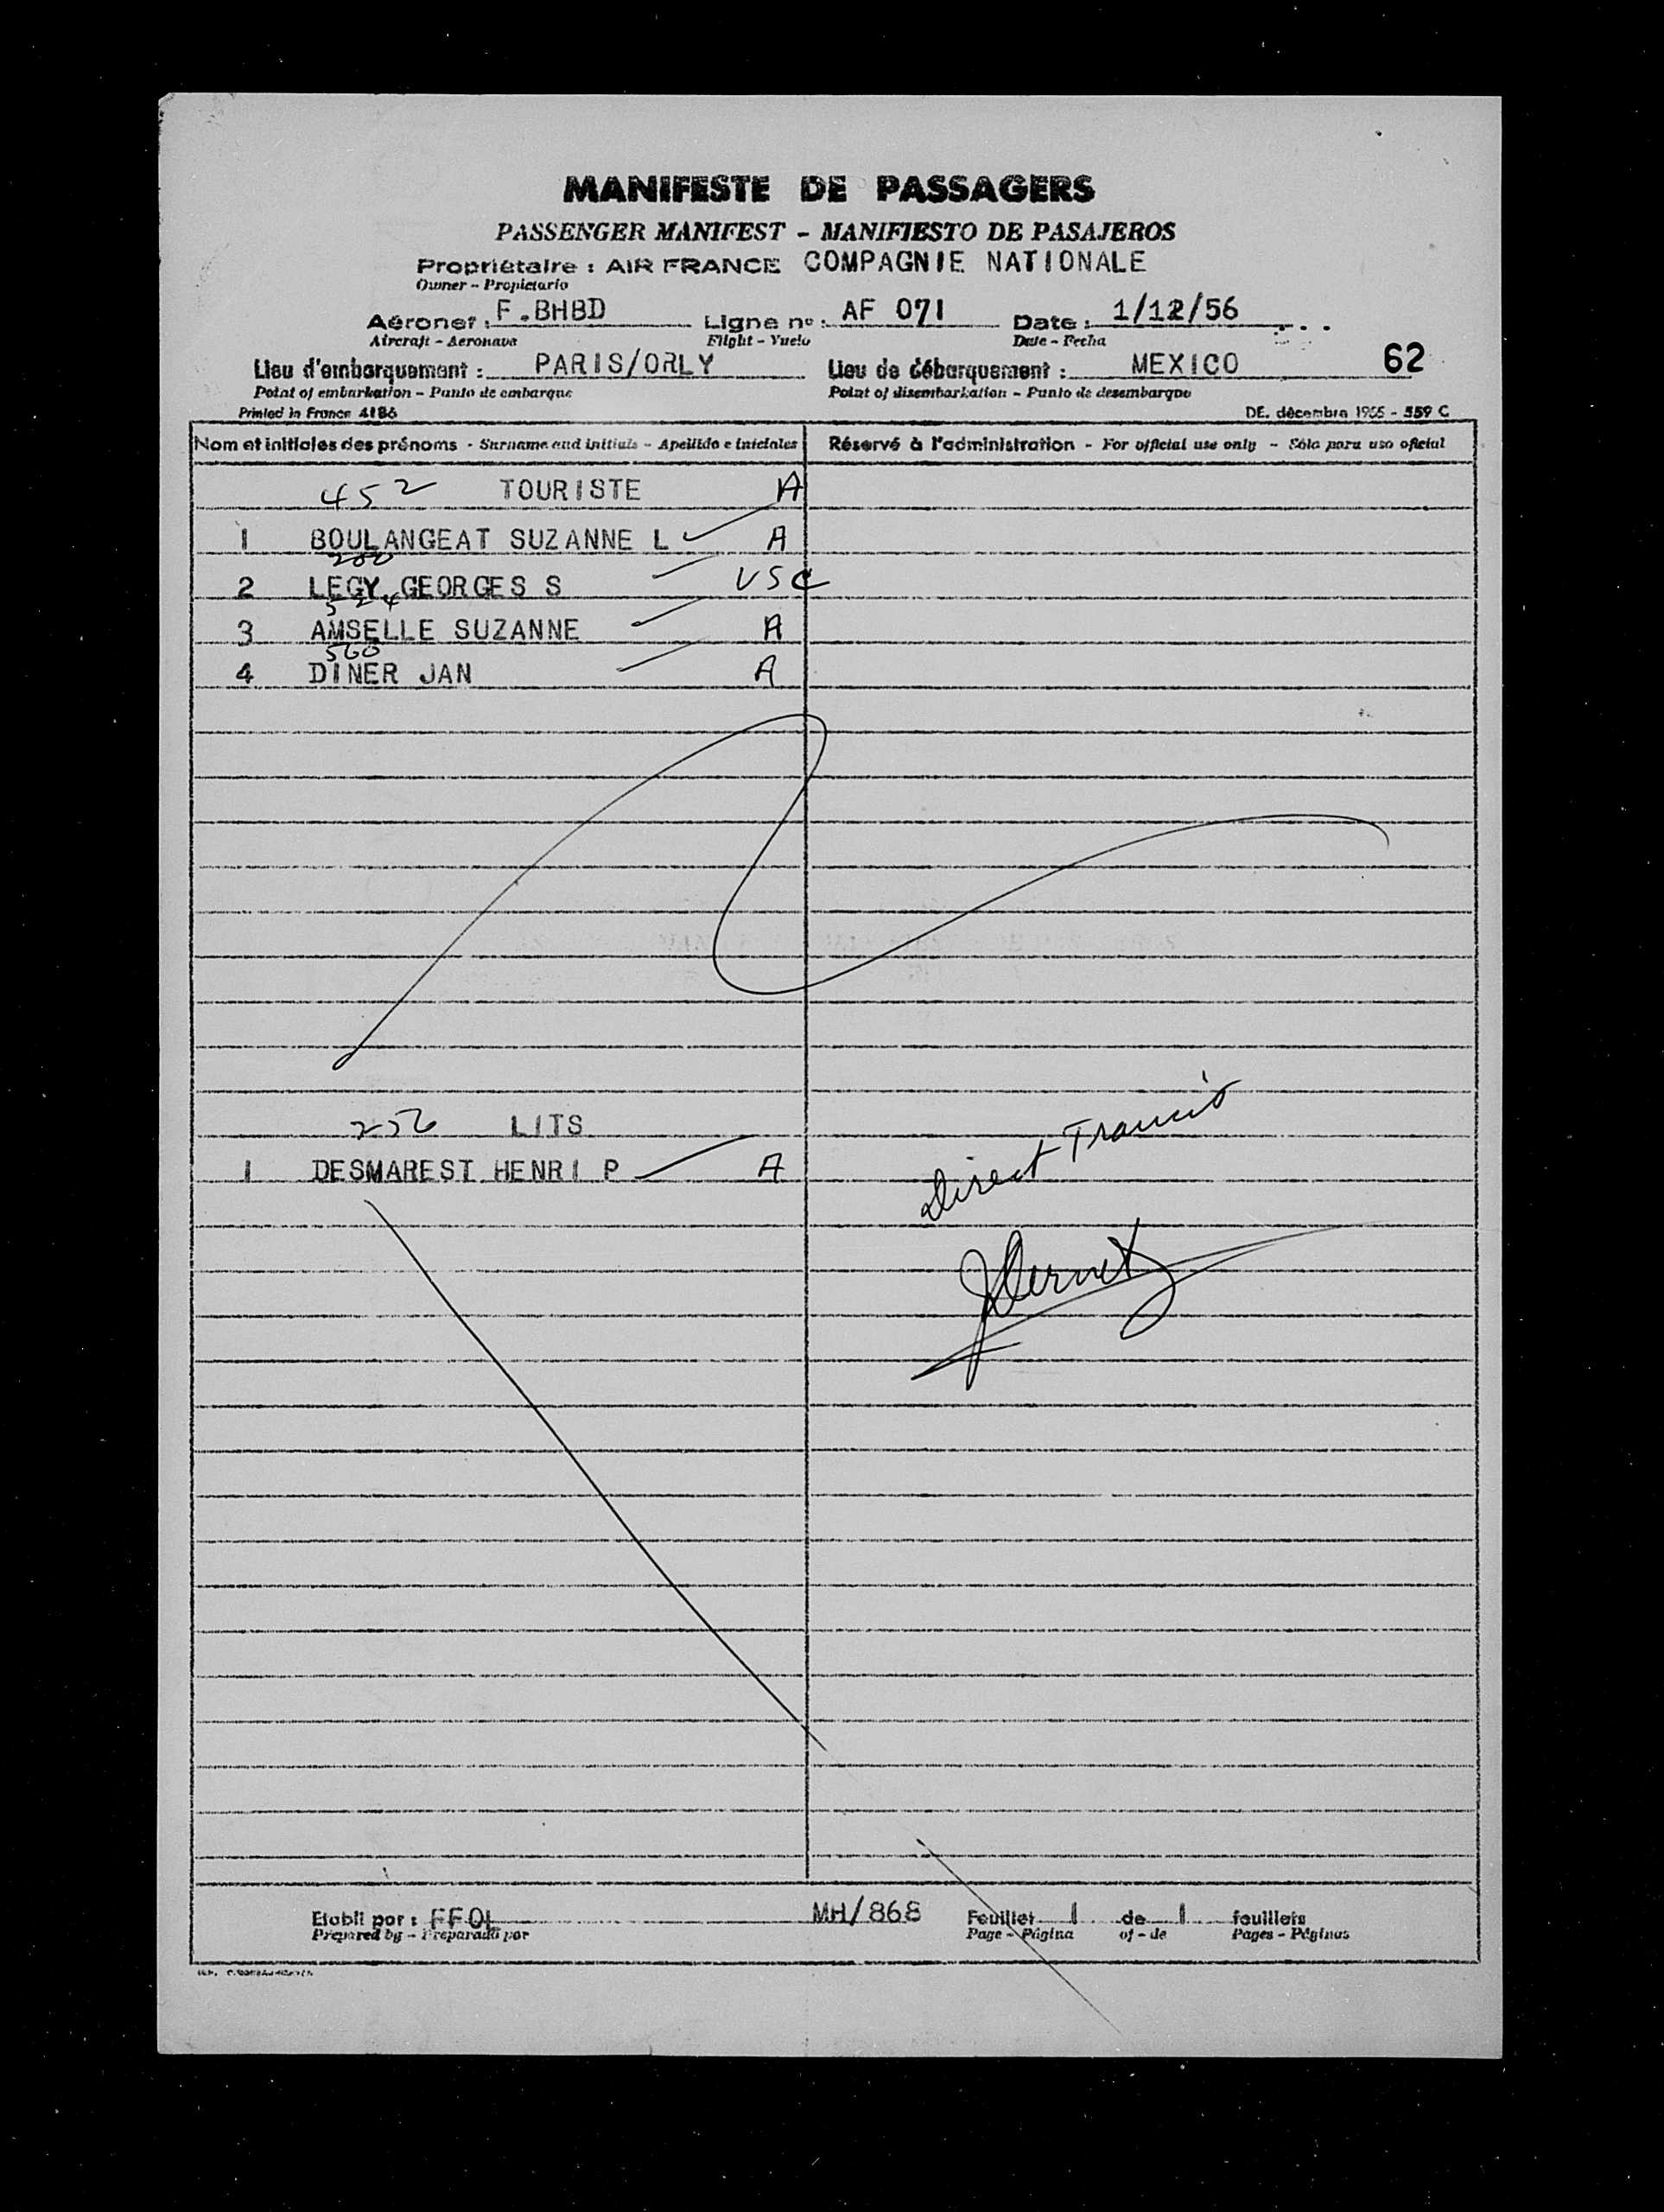 MANIFESTE DE PASSAGERS
PASSENGER MANIFEST - MANIFIESTO DE PASAJEROS
Propriétaire : AIR FRANCE COMPAGNIE NATIONALE
Owner - Propietario
Aéronef : F.BHBD Ligne nº : AF 071 Date : 1/12/56
Aircraft - Aeronave Flight - Vuelo Date - Fecha
Lieu d'embarquement : PARIS/ORLY Lieu de débarquement : MEXICO 62
Point of embarkation - Punto de embarque Point of disembarkation - Punto de desembarque
Printed in France 4186 DE. décembre 1955 - 559 C
Nom et initiales des prénoms - Surname and initials - Apellido e iniciales Réservé à l'administration - For official use only - Sólo para uso oficial
452 TOURISTE A
1 BOULANGEAT SUZANNE L A
200
2 LEGY GEORGES S USC
524
3 AMSELLE SUZANNE A
560
4 DINER JAN A
256 LITS
1 DESMAREST HENRI P A
Direct Transit
Etabli par : FFOL MH/868 Feuillet 1 de 1 feuillets
Prepared by - Preparado por Page - Página of - de Pages - Páginas